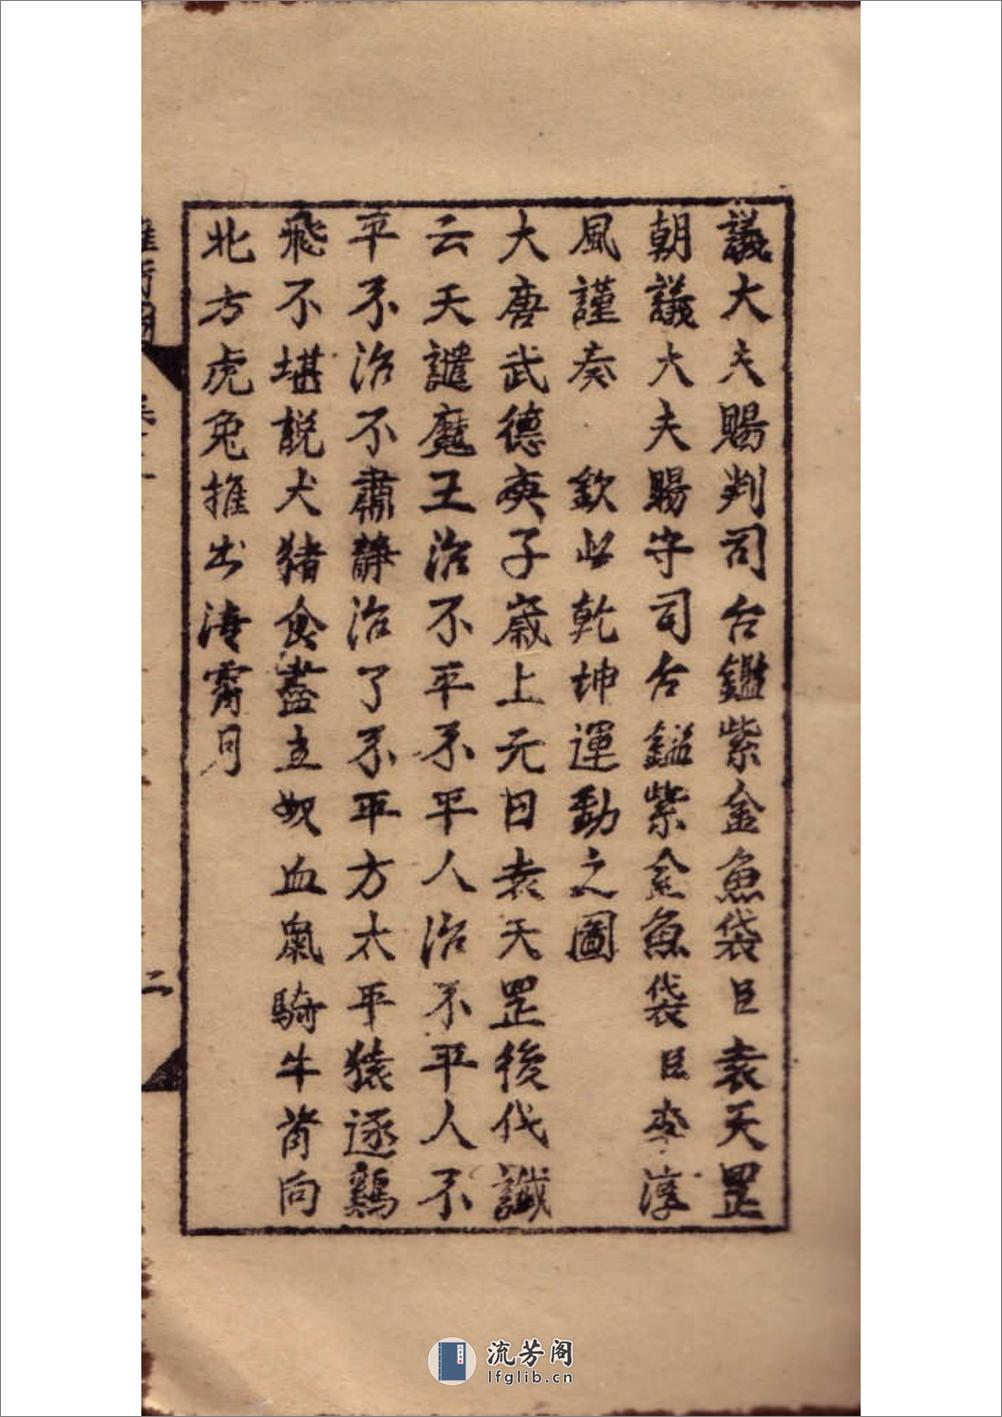 議大夫賜判司台鑑紫金魚袋臣袁天罡
朝議大夫賜守司台鎰紫金魚袋臣李淳
風謹奏　欽此乾坤運動之圖
大唐武德庚子歲上元日袁天罡後代讖
云天譴魔王治不平不平人治不平人不
平不治不肅靜治了不平方太平猿逐鷄
飛不堪説犬猪食盡立奴血氣騎牛背向
北方虎兔推出淩霄月
二
流芳阁
lfglib.cn